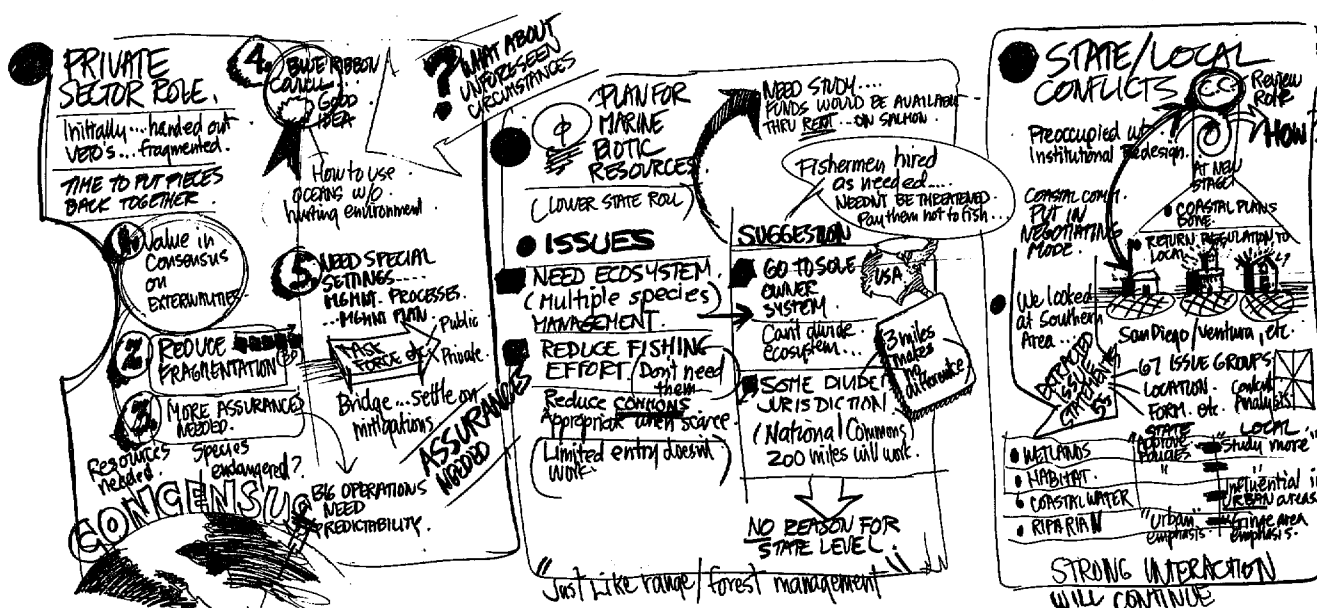 PRIVATE
SECTOR ROLE.
Initially...handed out
VETO'S...fragmented.
TIME TO PUT PIECES
BACK TOGETHER.
1.
Value in
Consensus
on
EXTERNALITIES.
2
REDUCE
FRAGMENTATION
3
MORE ASSURANCES
NEEDED.
Resources
needed
Species
endangered?
CONCENSUS
4.
BLUE RIBBON
Council...
GOOD
IDEA
How to use
OCEANS w/o
hurting environment
5
NEED SPECIAL
SETTINGS.....
MGMNT. PROCESSES.
...MGMNT PLAN
TASK
FORCE of
Public
Private.
Bridge...settle on
mitigations.
ASSURANCES
NEEDED
BIG OPERATIONS
NEED
PREDICTABILITY.
?
WHAT ABOUT
UNFORESEEN
CIRCUMSTANCES
PLAN FOR
MARINE
BIOTIC
RESOURCES
(LOWER STATE ROLL)
ISSUES
NEED ECOSYSTEM.
(Multiple species)
MANAGEMENT.
REDUCE FISHING
EFFORT.
Don't need
them
Reduce COMMONS
Appropriate when scarce.
(Limited entry doesn't
work.
NEED STUDY....
FUNDS WOULD BE AVAILABLE
THRU RENT...ON SALMON.
Fishermen hired
as needed....
NEEDN'T BE THREATENED.
Pay them not to fish...
SUGGESTION
GO TO SOLE
OWNER
SYSTEM.
Can't divide
ecosystem...
USA
3 miles
makes
no
difference
SOME DIVIDED
JURISDICTION
(National Commons)
200 miles will work.
NO REASON FOR
STATE LEVEL.
"Just like range/forest management"
STATE/LOCAL
CONFLICTS
CC
Review
Role
HOW?
Preoccupied w/
Institutional Redesign.
AT NEW
STAGE!
COASTAL COMM.
PUT IN
NEGOTIATING
MODE.
COASTAL PLANS
DONE.
RETURN REGULATION TO
LOCAL
We looked
at Southern
Area...
San Diego/Ventura, etc.
EXPECTED
ISSUE
STATEMENTS
55
67 ISSUE GROUPS
LOCATION.
FORM. etc.
Content
Analysis
STATE
LOCAL
WETLANDS
"Approve
Policies
"Study more"
HABITAT.
"
COASTAL WATER
Influential in
URBAN areas
RIPARIAN
"Urban"
emphasis.
"Fringe area
emphasis.
STRONG INTERACTION
WILL CONTINUE